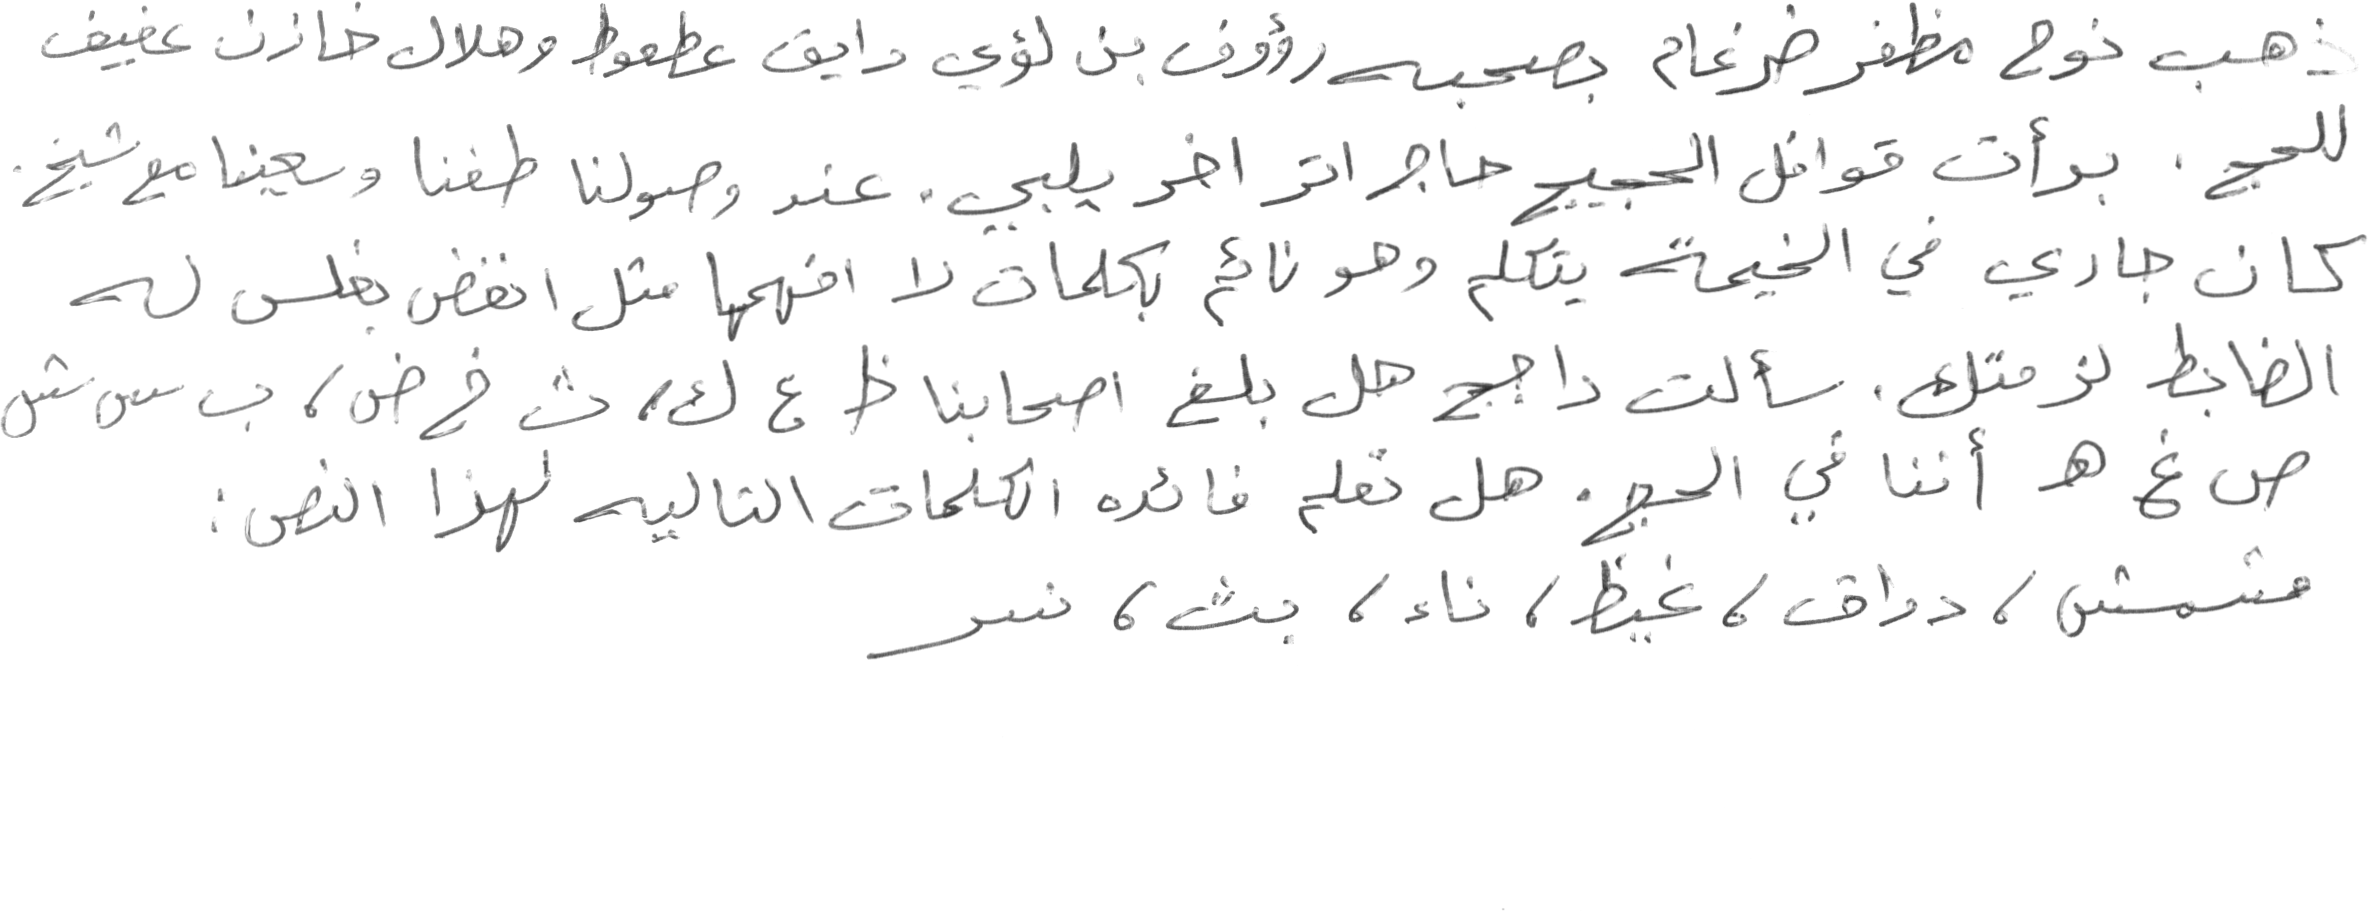 ذهب نوح مظفر ضرغام بصحبه رؤوف بن لؤي رايق عطعوط وهلال خازن عفيف
للحج . بدأت قوافل الحجيج حاج اثر اخر يلبي . عند وصولنا طفنا وسعينا مع شيخ .
كان جاري في الخيمة يتكلم وهو نائم بكلمات لا افهمها مثل انقض بغلس له
الضابط لزمتك . سألت داجج هل بلغ اصحابنا ظ ع ك ، ث خ ض ، ب س ش
ص غ هـ أننا في الحج . هل تعلم فائده الكلمات التاليه لهذا النص :
مشمش ، دراق ، غيظ ، ناء ، بث ، نسر